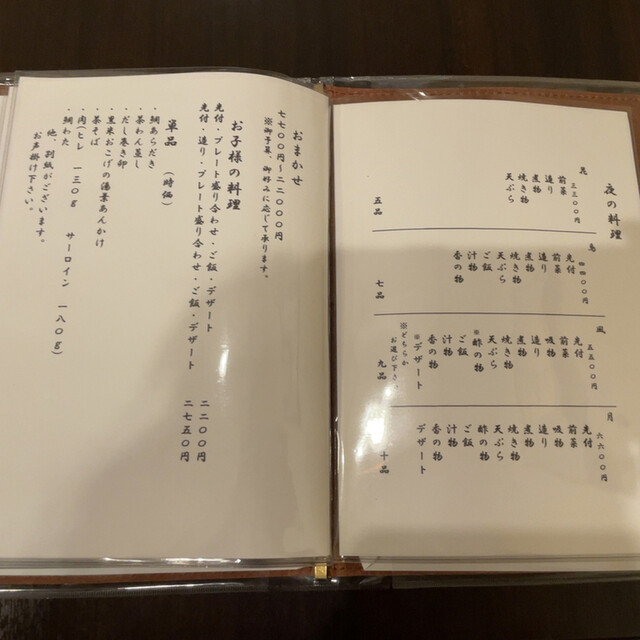 夜の料理
花 三三〇〇円
前菜
造り
煮物
焼き物
天ぷら
五品
鳥 四四〇〇円
先付
前菜
造り
煮物
焼き物
天ぷら
ご飯
汁物
香の物
七品
風 五五〇〇円
先付
前菜
吸物
造り
煮物
焼き物
天ぷら
※酢の物
ご飯
汁物
香の物
※デザート
※どちらか
お選び下さい
九品
月 六六〇〇円
先付
前菜
吸物
造り
煮物
焼き物
天ぷら
酢の物
ご飯
汁物
香の物
デザート
十品
おまかせ
七七〇〇円～二二〇〇〇円
※御予算、御好みに応じて承ります。
お子様の料理
先付・プレート盛り合わせ・ご飯・デザート 二二〇〇円
先付・造り・プレート盛り合わせ・ご飯・デザート 二七五〇円
単品 (時価)
・鯛あらだき
・茶わん蒸し
・だし巻き卵
・黒米おこげの湯葉あんかけ
・茶そば
・肉(ヒレ 一三〇g サーロイン 一八〇g)
・鯛わた
他、別紙がございます。
お声掛け下さい。